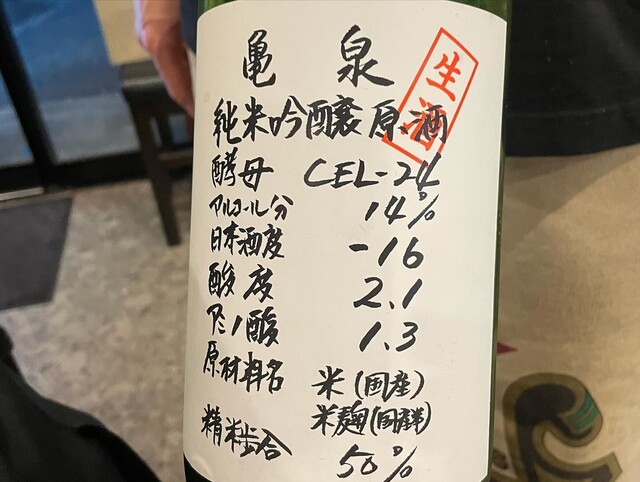 亀泉
生酒
純米吟醸原酒
酵母 CEL-24
アルコール分 14%
日本酒度 -16
酸度 2.1
アミノ酸 1.3
原材料名 米(国産)
米麹(国産米)
精米歩合 50%